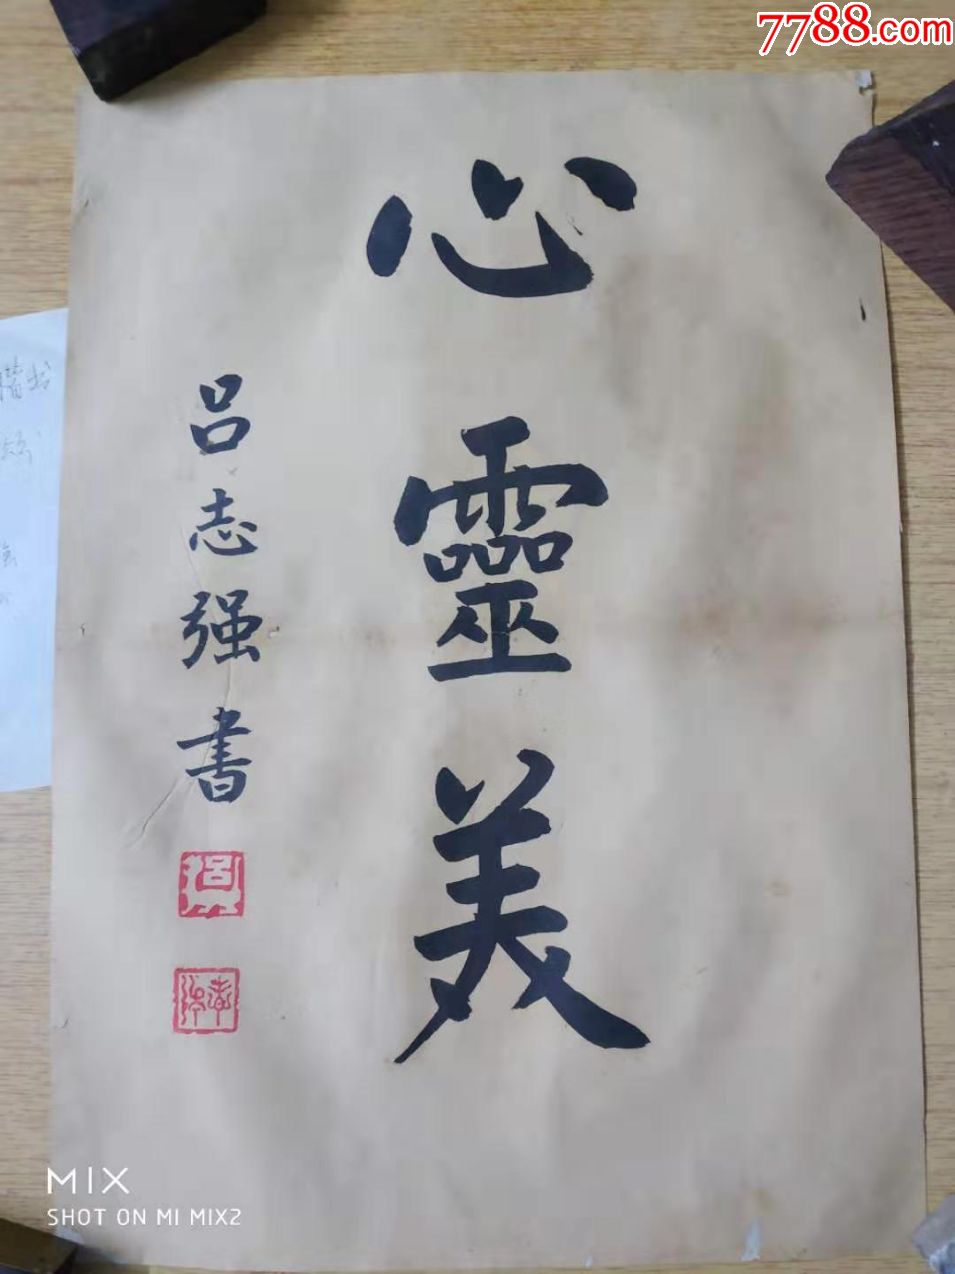 7788.com
心靈美
吕志强書
MIX
SHOT ON MI MIX2